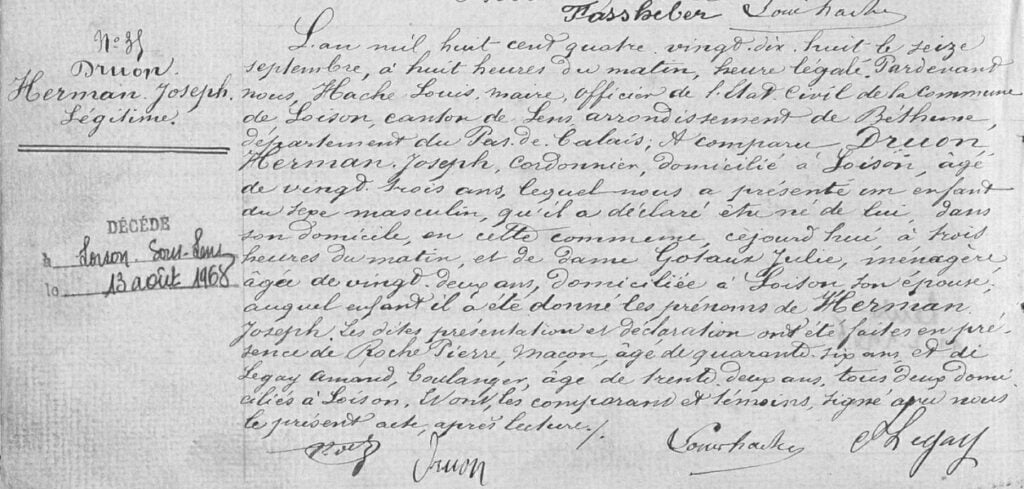 Fassheber Louis hache
N° 35
Druon.
Herman Joseph.
Légitime.
DÉCÉDÉ
à Loison Sous-Lens
le 13 août 1968
L'an mil huit cent quatre vingt dix huit le seize
septembre, à huit heures du matin, heure légale. Pardevant
nous, Hache Louis, maire, Officier de l'état Civil de la commune
de Loison, canton de Lens, arrondissement de Béthune,
département du Pas de Calais; A comparu Druon
Herman Joseph, cordonnier, domicilié à Loison, âgé
de vingt trois ans, lequel nous a présenté un enfant
du sexe masculin, qu'il a déclaré être né de lui, dans
son domicile, en cette commune, cejourd'hui, à trois
heures du matin, et de dame Gotaux Julie, ménagère
âgée de vingt deux ans, domiciliée à Loison, son épouse,
auquel enfant il a été donné les prénoms de Herman
Joseph. Les dites présentation et déclaration ont été faites en pré-
sence de Roche Pierre, maçon, âgé de quarante six ans, et de
Legay Amand, boulanger, âgé de trente deux ans, tous deux domi
ciliés à Loison. Et ont, les comparant et témoins, signé avec nous
le présent acte, après lecture./.
Druon Louis hache Legay